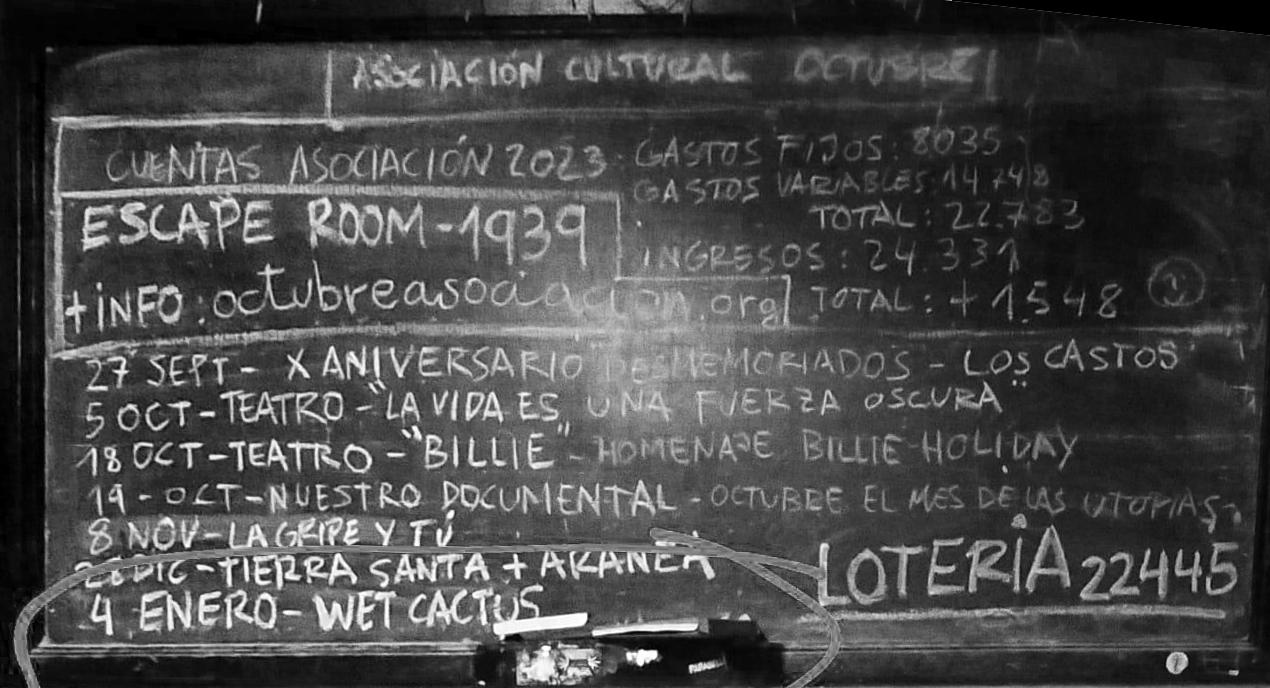 ASOCIACIÓN CULTURAL OCTUBRE
CUENTAS ASOCIACIÓN 2023
GASTOS FIJOS: 8035
GASTOS VARIABLES: 14748
TOTAL: 22.783
INGRESOS: 24.331
TOTAL: +1.548
ESCAPE ROOM-1939
+INFO: octubreasociacion.org
27 SEPT- X ANIVERSARIO DESMEMORIADOS - LOS CASTOS
5 OCT-TEATRO-"LA VIDA ES UNA FUERZA OSCURA"
18 OCT-TEATRO-"BILLIE"-HOMENAJE BILLIE HOLIDAY
19-OCT-NUESTRO DOCUMENTAL-OCTUBRE EL MES DE LAS UTOPIAS
8 NOV-LA GRIPE Y TÚ
DIC-TIERRA SANTA + ARANEA
4 ENERO-WET CACTUS
LOTERIA 22445